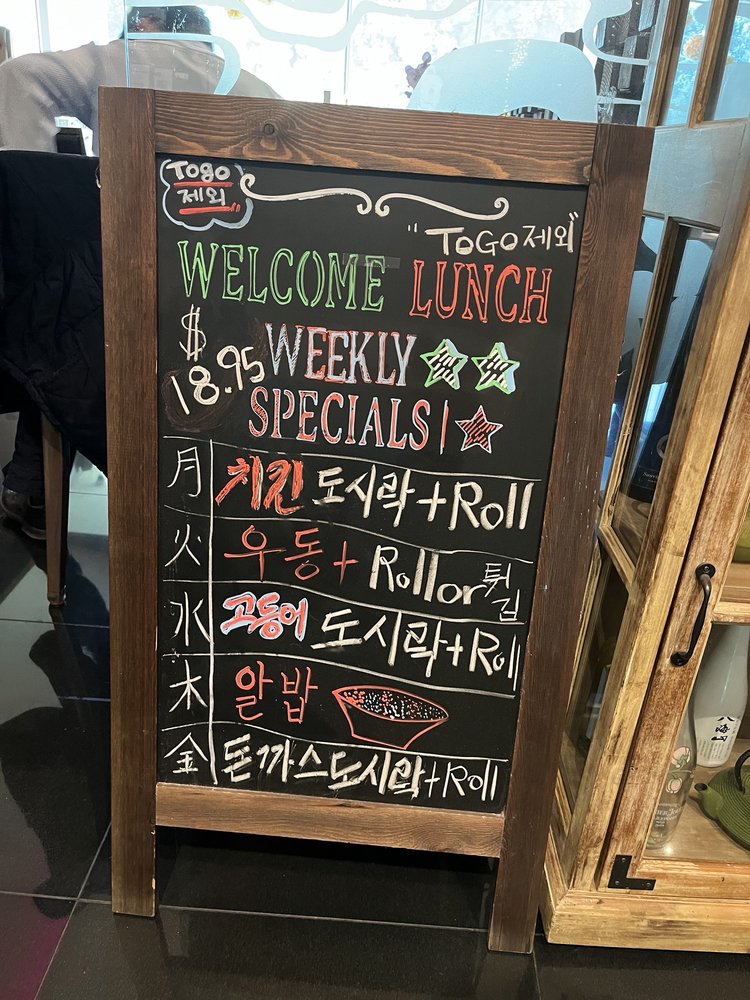 Togo
제외
"ToGo제외"
WELCOME LUNCH
$18.95
WEEKLY
SPECIALS!
月 치킨 도시락+Roll
火 우동+ Roll or 튀김
水 고등어 도시락+Roll
木 알밥
金 돈까스도시락+Roll
八海山